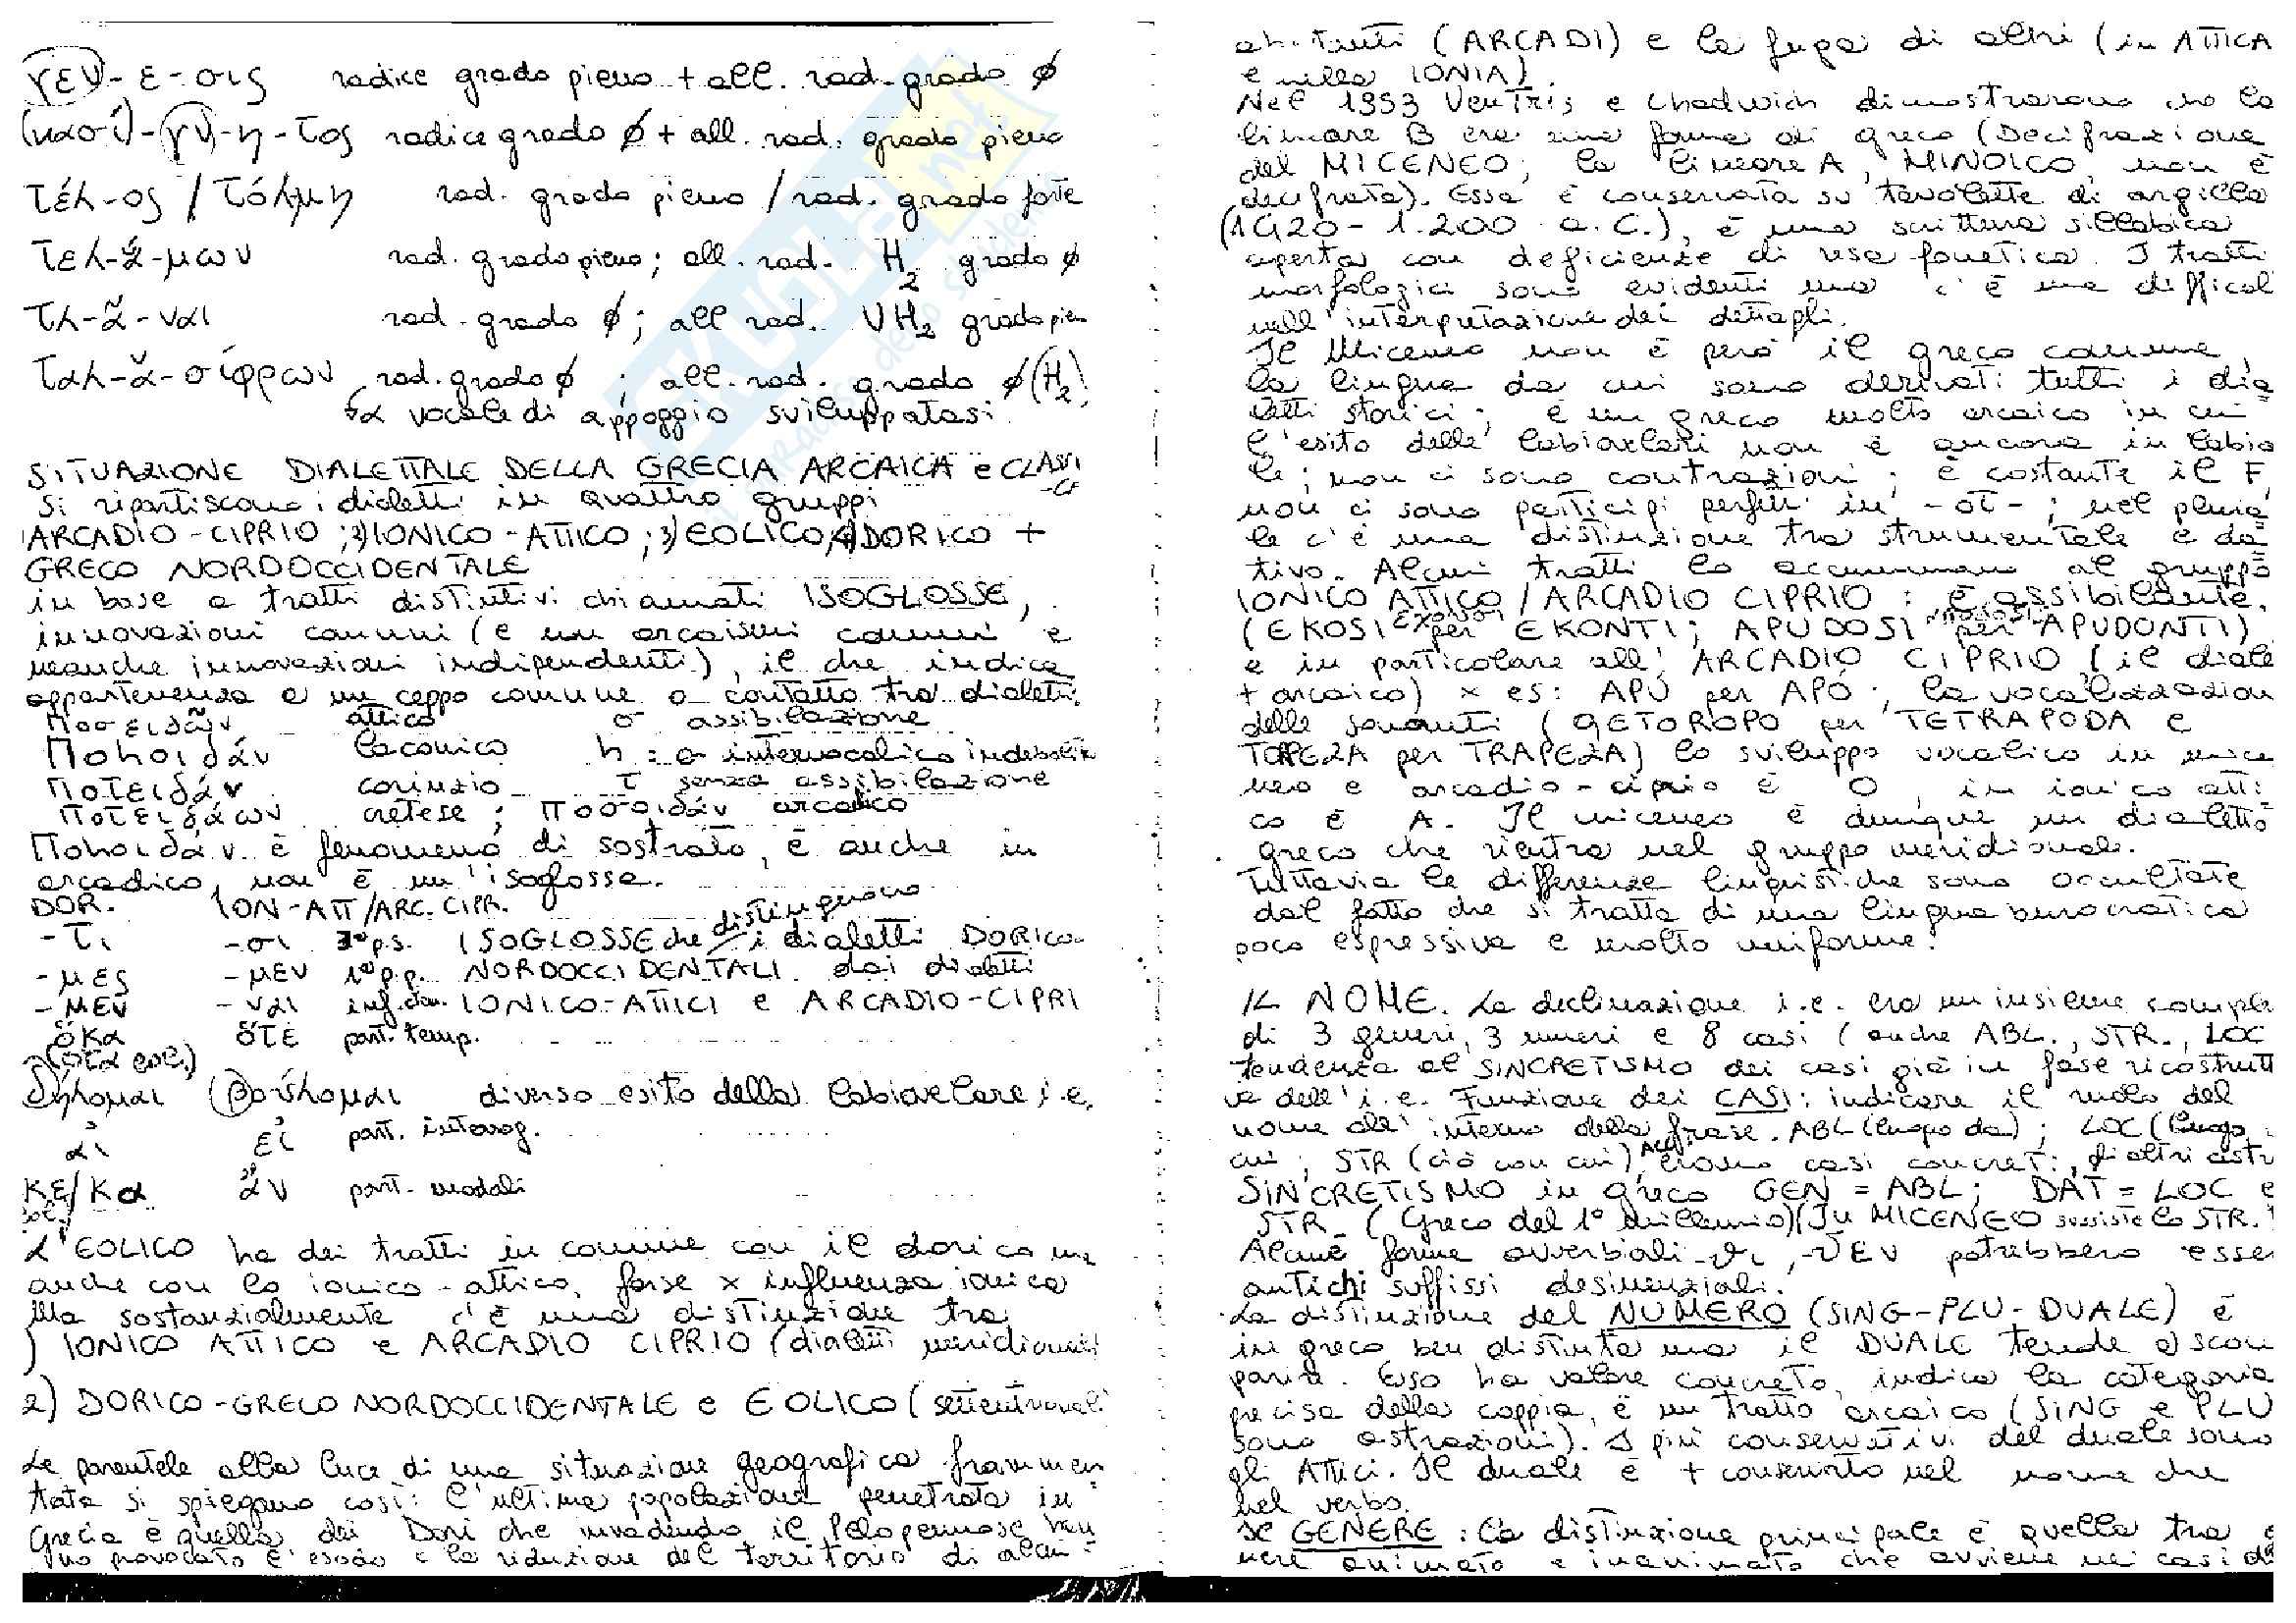 γεν-ε-σις radice grado pieno + all. rad. grado ø
(κασί)-γν-η-τος radice grado ø + all. rad. grado pieno
τέλ-ος / τόλμη rad. grado pieno / rad. grado forte
τελ-ᾰ́-μων rad. grado pieno; all. rad. H₂ grado ø
τλ-ᾶ-ναι rad. grado ø; all rad. VH₂ grado pien
ταλ-ᾰ-σίφρων rad. grado ø ; all. rad. grado ø (H₂)
↳ α vocale di appoggio sviluppatasi
SITUAZIONE DIALETTALE DELLA GRECIA ARCAICA e CLASSI
-CA
Si ripartiscono i dialetti in quattro gruppi
ARCADIO-CIPRIO; 2) IONICO-ATTICO; 3) EOLICO; 4) DORICO +
GRECO NORDOCCIDENTALE
in base a tratti distintivi chiamati ISOGLOSSE,
innovazioni comuni (e non arcaismi comuni e
neanche innovazioni indipendenti), il che indica
appartenenza a un ceppo comune o contatto tra dialetti.
Ποσειδῶν attico σ assibilazione
Ποhοιδάν laconico h = σ intervocalico indebolit
Ποτειδάν corinzio τ senza assibilazione
Ποτειδάων cretese ; Ποσοιδάν arcadico
Ποhοιδάν è fenomeno di sostrato, è anche in
arcadico, non è un'isoglossa.
DOR. ION-ATT/ARC. CIPR.
-τι -σι 3ª p.s. ISOGLOSSE che distinguono i dialetti DORICO-
-μες -μεν 1ª p.p. NORDOCCIDENTALI dai dialetti
-μεν -ναι inf. IONICO-ATTICI e ARCADIO-CIPRI
ὅκα ὅτε part. temp.
(ὅτα eol.)
δήλομαι βούλομαι diverso esito della labiovelare i.e.
αἰ εἰ part. interrog.
κε/κα ἄν part. modali
L'EOLICO ha dei tratti in comune con il dorico ma
anche con lo ionico-attico, forse x influenza ionica
Ma sostanzialmente c'è una distinzione tra
) IONICO ATTICO e ARCADIO CIPRIO (dialetti meridionali
2) DORICO-GRECO NORDOCCIDENTALE e EOLICO (settentrionali
Le parentele alla luce di una situazione geografica frammen
tata si spiegano così: l'ultima popolazione penetrata in
Grecia è quella dei Dori che invadendo il Peloponneso han
no provocato l'esodo e la riduzione del territorio di alcu-
abitanti (ARCADI) e la fuga di altri (in ATTICA
e nella IONIA).
Nel 1953 Ventris e Chadwich dimostrarono che la
lineare B era una forma di greco (Decifrazione
del MICENEO; la lineare A, MINOICO, non è
decifrata). Essa è conservata su tavolette di argilla
(1420-1.200 a.C.), è una scrittura sillabica
aperta con deficienze di resa fonetica. I tratti
morfologici sono evidenti ma c'è una difficol
nell'interpretazione dei dettagli.
Il Miceneo non è però il greco comune,
la lingua da cui sono derivati tutti i dia
letti storici; è un greco molto arcaico in cui
l'esito delle labiovelari non è ancora in labia
le; non ci sono contrazioni; è costante il F,
non ci sono participi perfetti in -οτ-; nel plura
le c'è una distinzione tra strumentale e da
tivo. Alcuni tratti lo accomunano al gruppo
IONICO ATTICO/ARCADIO CIPRIO : è assibilante.
(EKOSI per EKONTI; APUDOSI per APUDONTI)
e in particolare all'ARCADIO CIPRIO (il diale
+ arcaico) x es: APU per APO; la vocalizzazion
delle sonanti (QETOROPO per TETRAPODA e
TOPEZA per TRAPEZA) lo sviluppo vocalico in mice
neo e arcadio-ciprio è O, in ionico atti
co è A. Il miceneo è dunque un dialetto
greco che rientra nel gruppo meridionale.
Tuttavia le differenze linguistiche sono occultate
dal fatto che si tratta di una lingua burocratica
poco espressiva e molto uniforme.
IL NOME. La declinazione i.e. era un insieme comple
di 3 generi, 3 numeri e 8 casi (anche ABL., STR., LOC
tendenza al SINCRETISMO dei casi già in fase ricostrutt
va dell'i.e. Funzione dei CASI: indicare il ruolo del
nome all'interno della frase. ABL (luogo da); LOC (luogo
cui; STR (ciò con cui) ACC. erano casi concreti, gli altri astr
SINCRETISMO in greco GEN = ABL; DAT = LOC e
STR. (Greco del 1° Millennio) (In MICENEO sussiste lo STR.
Alcune forme avverbiali -θι, -θεν potrebbero esser
antichi suffissi desinenziali.
La distinzione del NUMERO (SING-PLU-DUALE) è
in greco ben distinta ma il DUALE tende a scom
parire. Esso ha valore concreto, indica la categoria
precisa della coppia, è un tratto arcaico (SING e PLU
sono astrazioni). I più conservativi del duale sono
gli Attici. Il duale è + conservato nel nome che
nel verbo.
Il GENERE : La distinzione principale è quella tra
nere animato e inanimato che avviene nei casi di